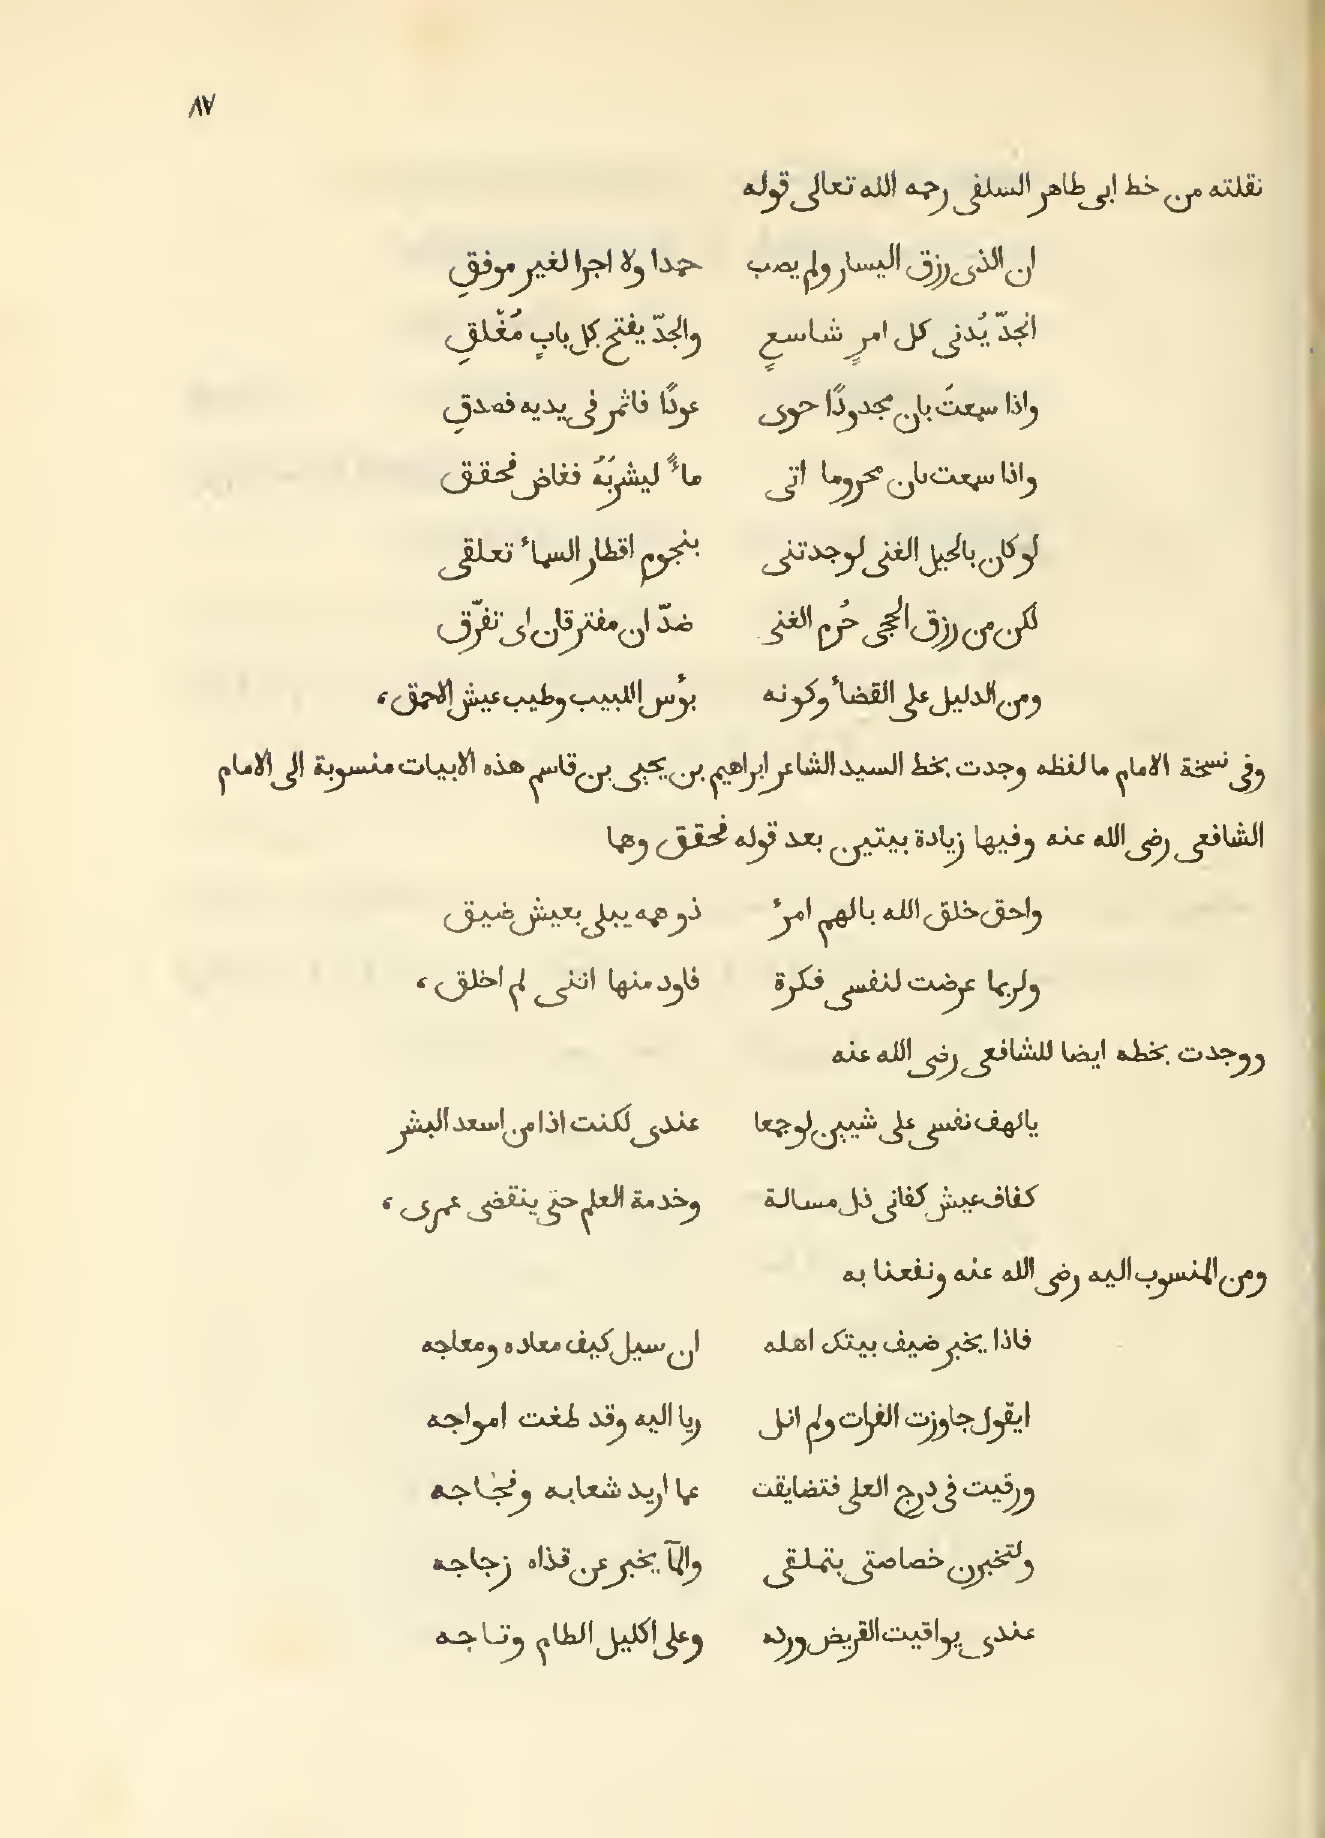 ٨٧
نقلته من خط ابى طاهر السلفى رحمه الله تعالى قوله
ان الذى رزق اليسار ولم يصب حمدا ولا اجرا لغير موفقِ
الجدّ يُدنى كل امرٍ شاسعٍ والجدّ يفتح كل بابٍ مُغْلقِ
واذا سمعتَ بان مجدودًا حوى عودًا فاثمر فى يديه فصدقِ
واذا سمعت بان محروما اتى ماءً ليشربَهُ فغاض فحقق
لو كان بالحيل الغنى لوجدتنى بنجوم اقطار السماء تعلقى
لكن من رزق الحجى حُرم الغنى ضدّ ان مفترقان اى تفرّق
ومن الدليل على القضاء وكونه بؤس اللبيب وطيب عيش الاحمق ،
وفى نسخة الامام ما لفظه وجدت بخط السيد الشاعر ابراهيم بن يحيى بن قاسم هذه الابيات منسوبة الى الامام
الشافعى رضى الله عنه وفيها زيادة بيتين بعد قوله فحقق وهما
واحق خلق الله بالهم امرء ذو همه يبلى بعيش ضيق
ولربما عرضت لنفسى فكرة فاود منها اننى لم اخلق ،
ووجدت بخطه ايضا للشافعى رضى الله عنه
يالهف نفسى على شيين لو جمعا عندى لكنت اذا من اسعد البشر
كفاف عيش كفانى ذل مسالة وخدمة العلم حتى ينقضى عمرى ،
ومن المنسوب اليه رضى الله عنه ونفعنا به
فاذا يخبر ضيف بيتك اهله ان سيل كيف معاده ومعاجه
ايقول جاوزت الفرات ولم انل ريا اليه وقد طغت امواجه
ورقيت فى درج العلى فتضايقت عما اريد شعابه وفجاجه
ولتخبرن خصاصتى بتملقى والمآ يخبر عن قذاه زجاجه
عندى يواقيت القريض ورده وعلى اكليل الطام وتاجه